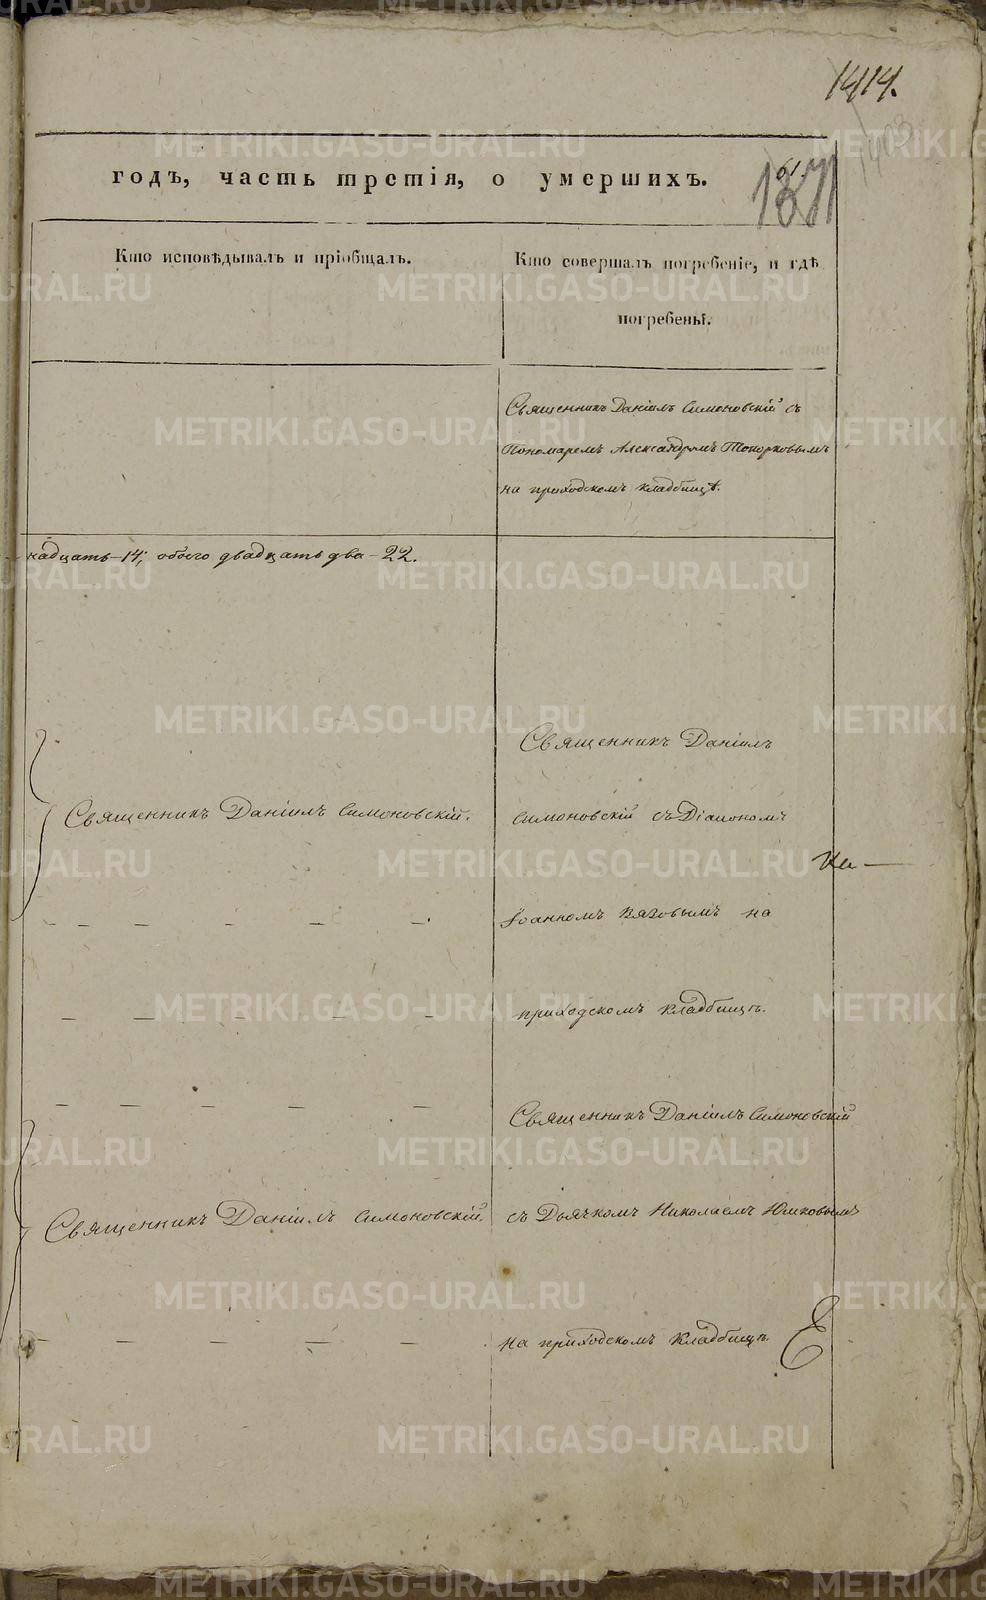 1414.
1403
61
годъ, часть третія, о умершихъ.
Кто исповѣдывалъ и пріобщалъ.
Кто совершалъ погребеніе, и гдѣ
погребены.
Священникъ Даніилъ Симоновскій съ
Пономаремъ Александромъ Топорковымъ
на приходскомъ кладбищѣ.
надцать–14; обоего двадцать два–22.
Священникъ Даніилъ
Священникъ Даніилъ Симоновскій.
Симоновскій съ Діакономъ
Іоанномъ Вяговымъ на
приходскомъ кладбищѣ.
Священникъ Даніилъ Симоновскій
Священникъ Даніилъ Симоновскій.
съ Дьячкомъ Николаемъ
на приходскомъ кладбищѣ.
METRIKI.GASO-URAL.RU